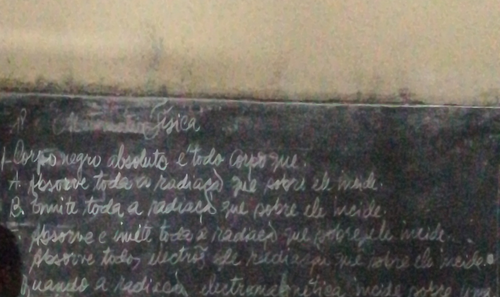 Física
1- Corpo negro absoluto é todo corpo que:
A. Absorve toda a radiação que sobre ele incide.
B. Emite toda a radiação que sobre ele incide.
Absorve e emite toda a radiação que sobre ele incide...
Absorve todos electrões radiação que sobre ele incide
Quando a radiação electromagnética incide sobre uma